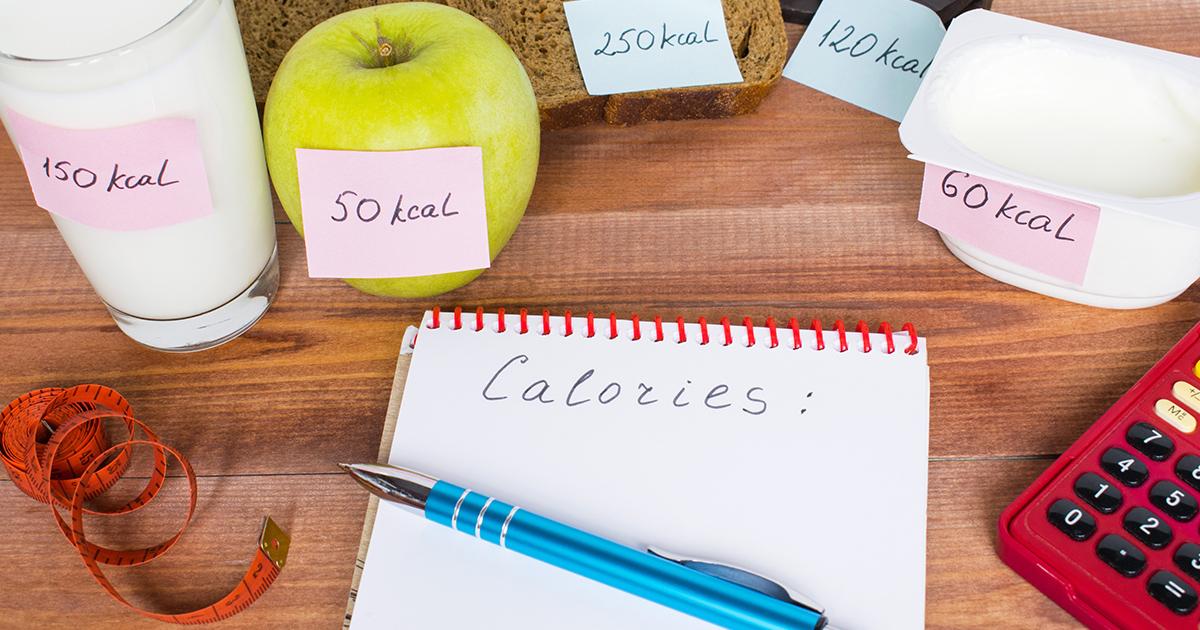 250 kcal
120 kcal
150 kcal
50 kcal
60 kcal
Calories :
+/-
ME
7
8
4
5
1
2
3
0
.
=